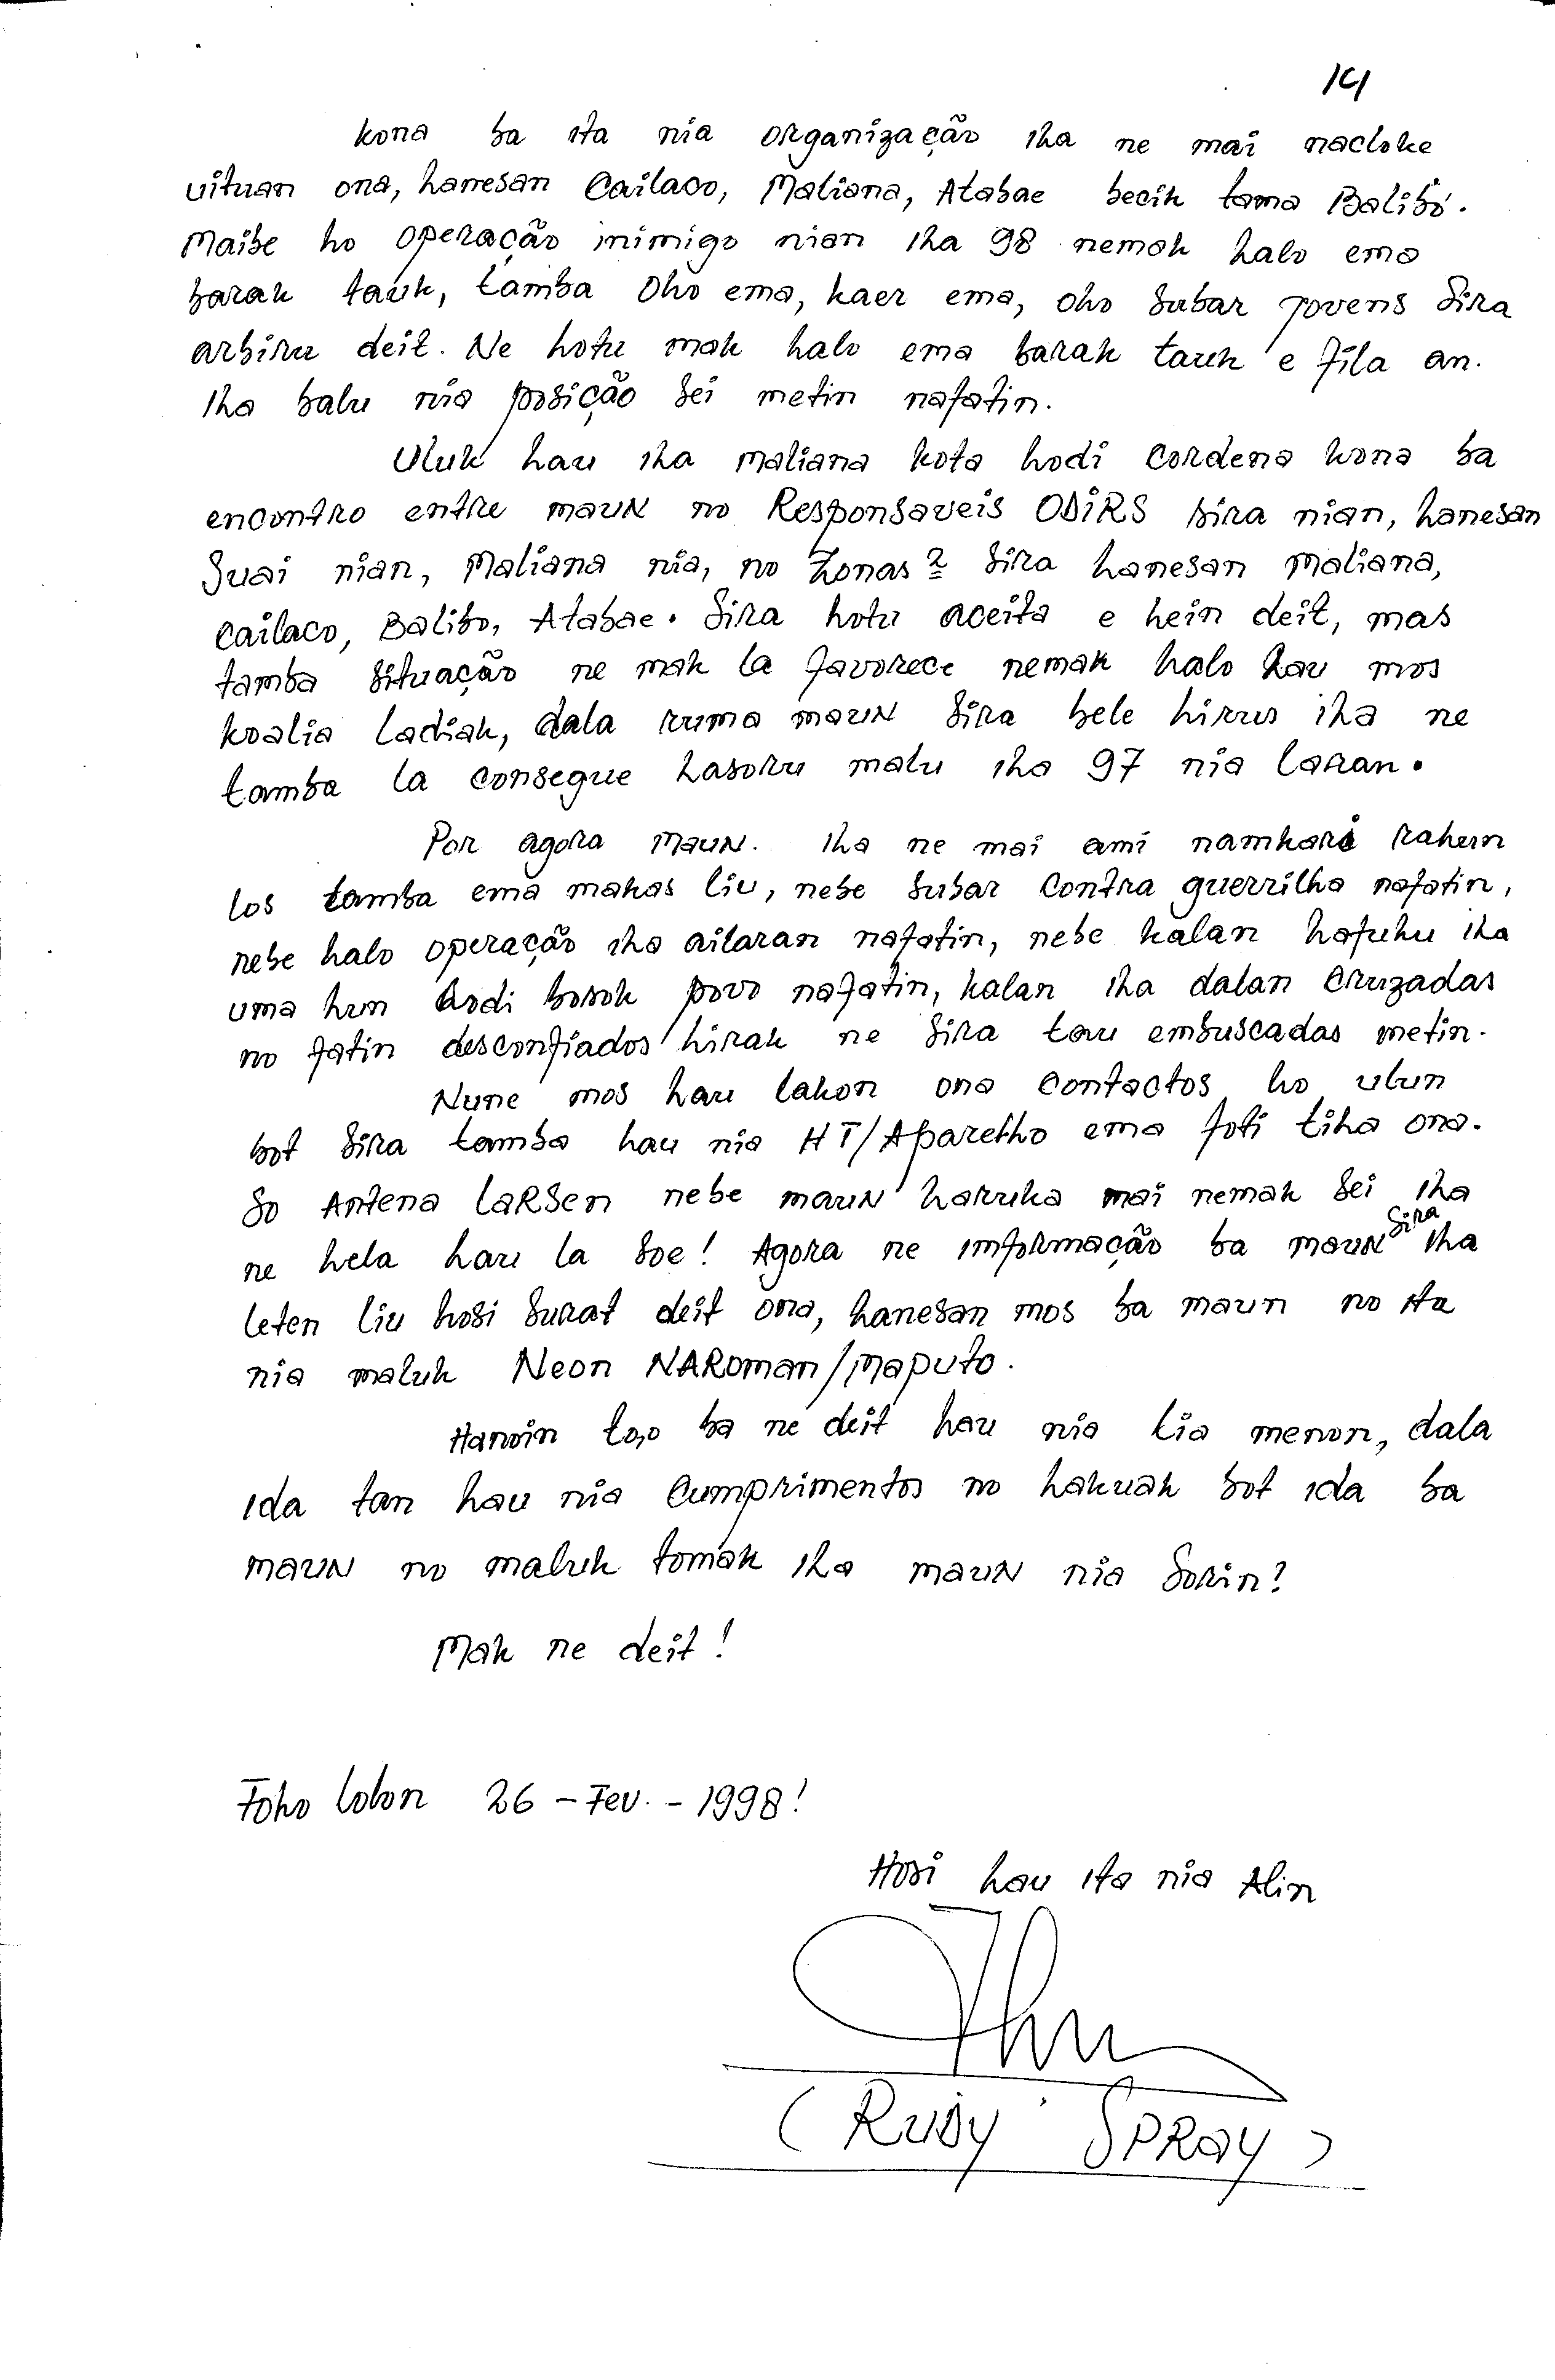 14
Kona ba ita nia organização iha ne mai nacloke
uituan ona, hanesan Cailaco, Maliana, Atabae becik tama Balibó.
Maibe ho operação inimigo nian iha 98 nemak halo ema
barak tauk, tamba oho ema, kaer ema, oho subar jovens sira
arbiru deit. Ne hotu mak halo ema barak tauk e fila an.
Iha balu nia posição sei metin nafatin.
Uluk hau iha Maliana kota hodi cordena kona ba
encontro entre mauN no Responsaveis ODiRS sira nian, hanesan
Suai nian, Maliana nia, no Zonas 2 sira hanesan Maliana,
Cailaco, Balibo, Atabae. Sira hotu aceita e hein deit, mas
tamba situação ne mak la favorece nemak halo hau mos
koalia ladiak, dala ruma mauN sira bele hirus iha ne
tamba la consegue hasoru malu iha 97 nia laran.
Por agora MauN. Iha ne mai ami namkari rahun
los tamba ema makas liu, nebe subar contra guerrilha nafatin,
nebe halo operação iha ailaran nafatin, nebe kalan hafuhu iha
uma hun hodi bosok povo nafatin, kalan iha dalan cruzadas
no fatin desconfiados hirak ne sira tau embuscadas metin.
Nune mos hau lakon ona contactos ho ulun
bot sira tamba hau nia HT/Aparelho ema foti tiha ona.
So Antena LaRSen nebe mauN haruka mai nemak sei iha
ne hela hau la soe! Agora ne imformação ba mauN sira iha
leten liu hosi surat deit ona, hanesan mos ba maun no ita
nia maluk Neon NARoman/Maputo.
Hanoin to,o ba ne deit hau nia lia menon, dala
ida tan hau nia cumprimentos no hakuak bot ida ba
mauN no maluk tomak iha mauN nia sorin?
Mak ne deit!
Foho lolon 26 - Fev. - 1998!
Hosi hau ita nia Alin
(RuDy SPRay)